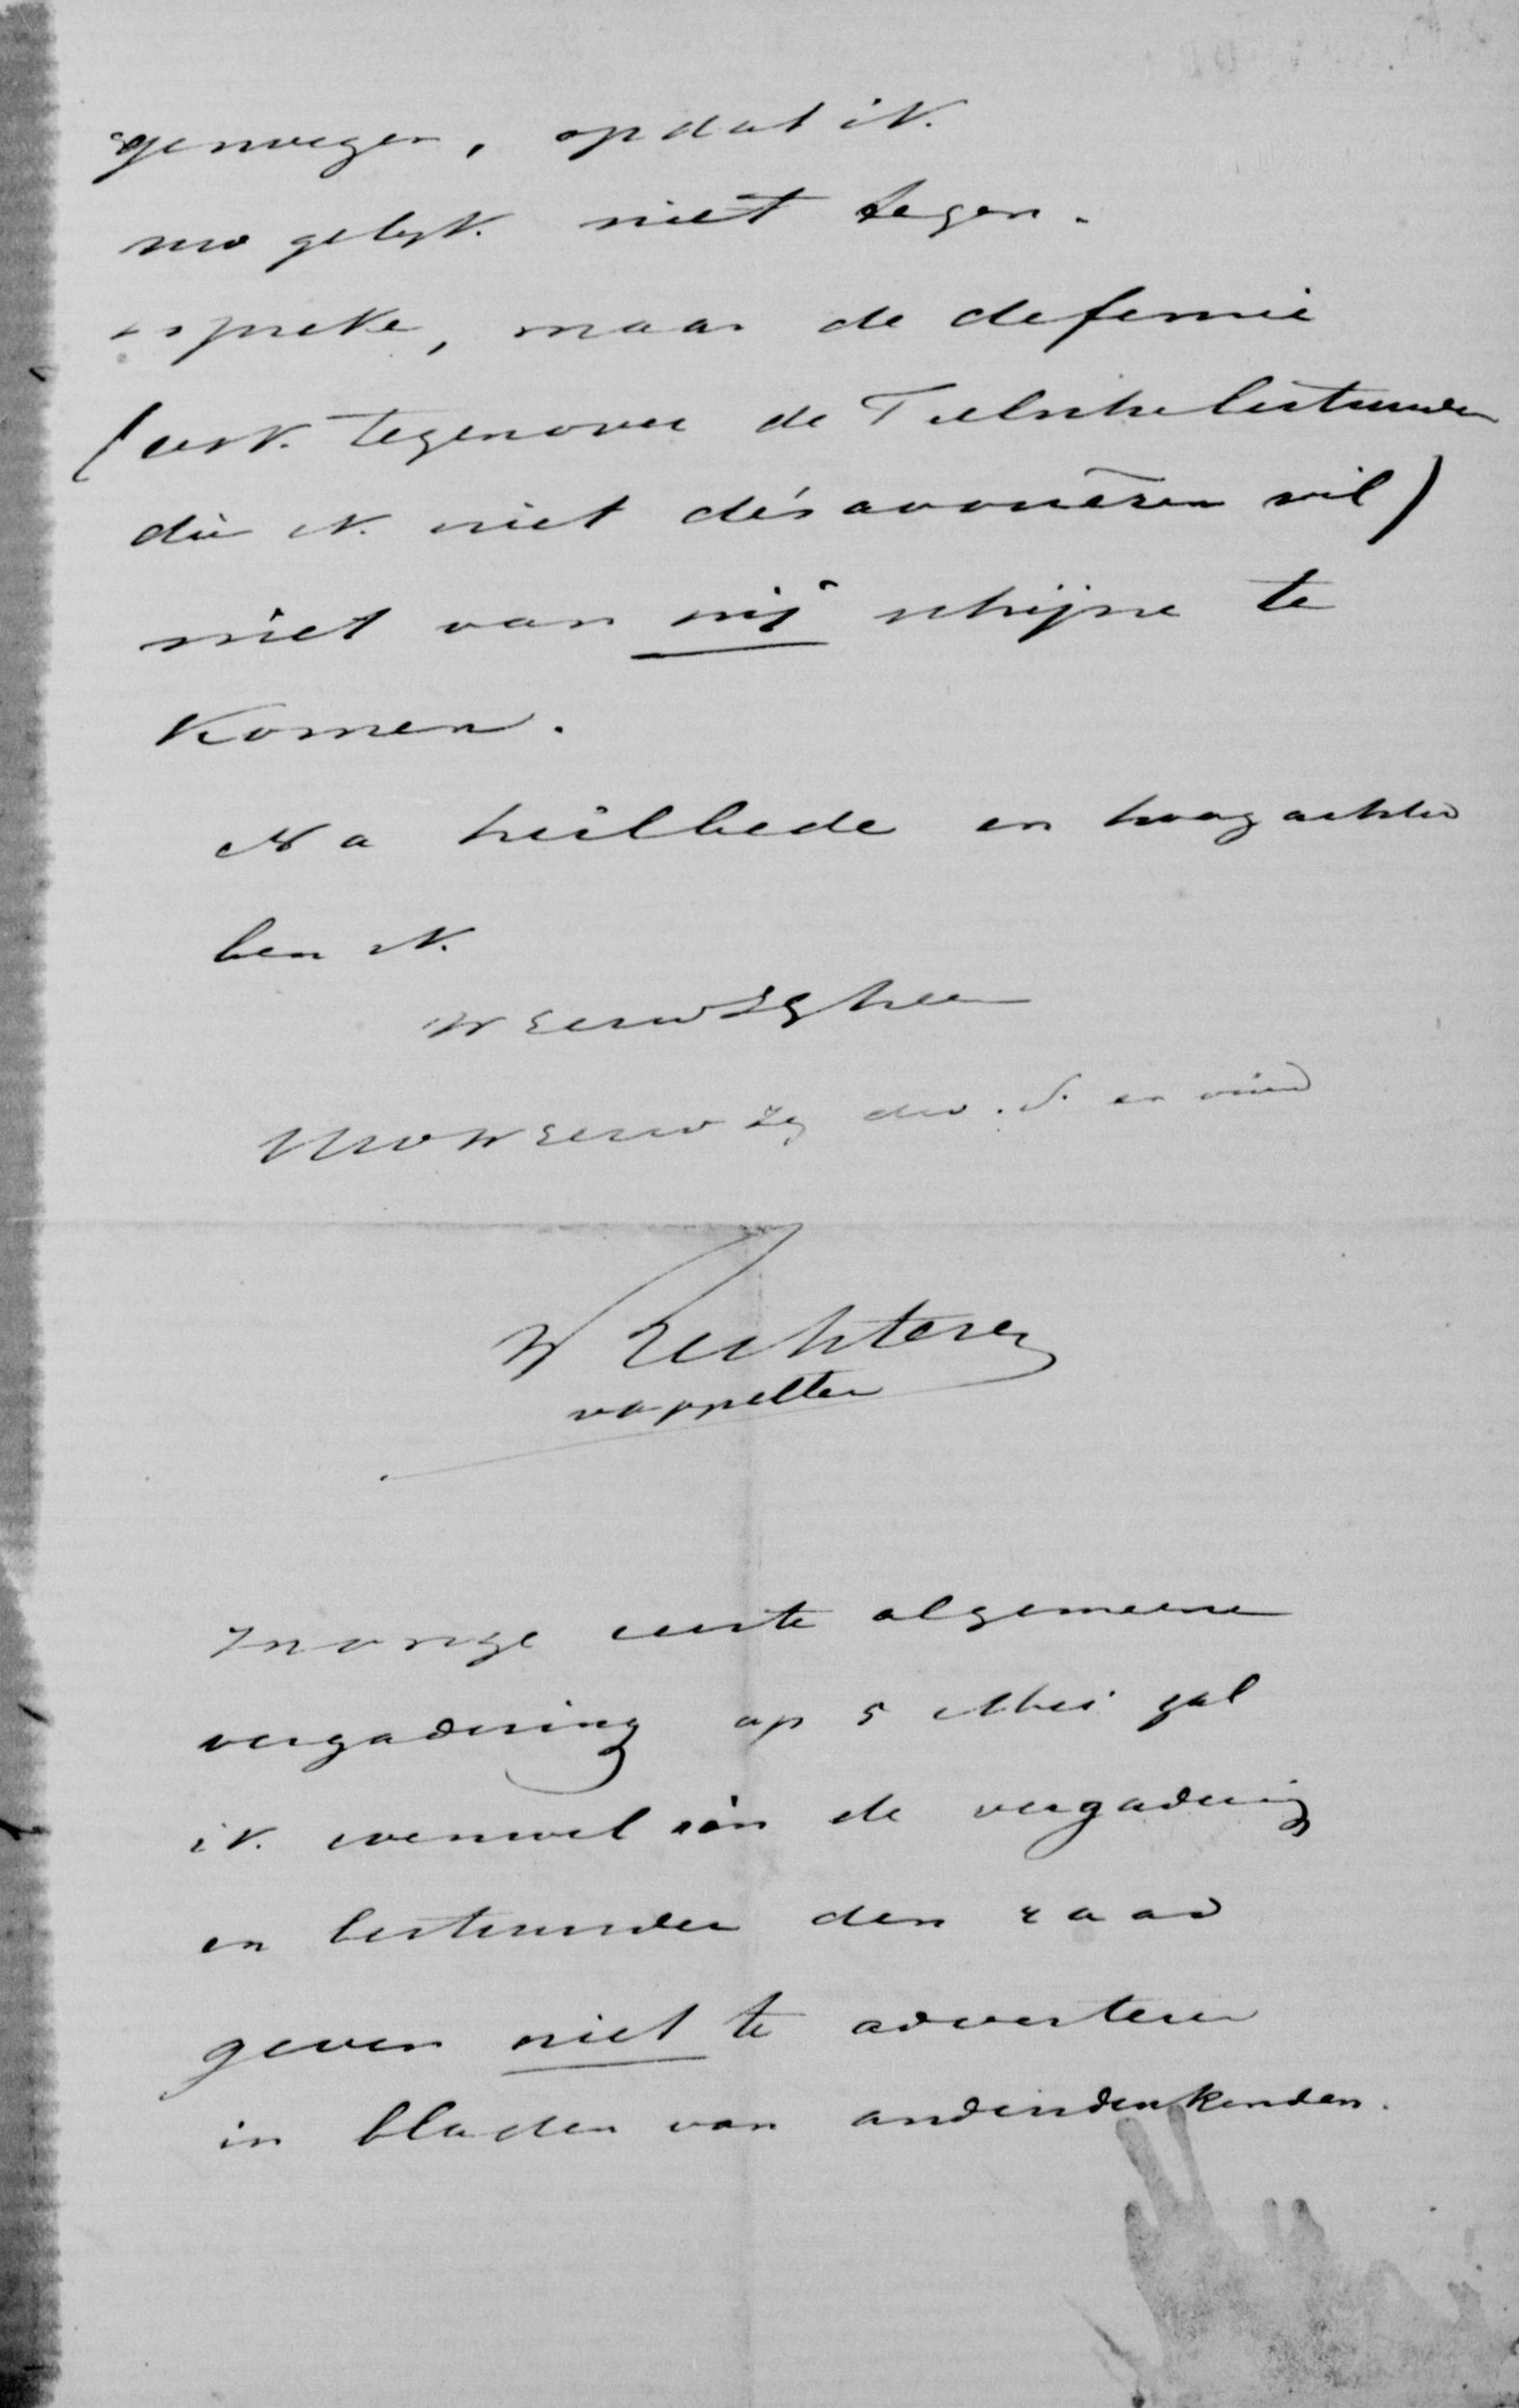 genoegen, opdat ik
uw gelijk niet tegen-
spreke, maar de defensie
(ook tegenover de Tielsche bestuurder
die ik niet désavouëren wil)
niet van mij schijne te
komen.
Na heilbede en hoogachtend
ben ik
WelEerwZgheer
UwWelEerwZg dw. d. en vriend
W Lichtere
rappelter
vorige eerste algemeene
vergadering op 5 Mei zal
ik evenwel aan de vergadering
en bestuurder den raad
geven niet te adverteren
in bladen van andersdenkenden.